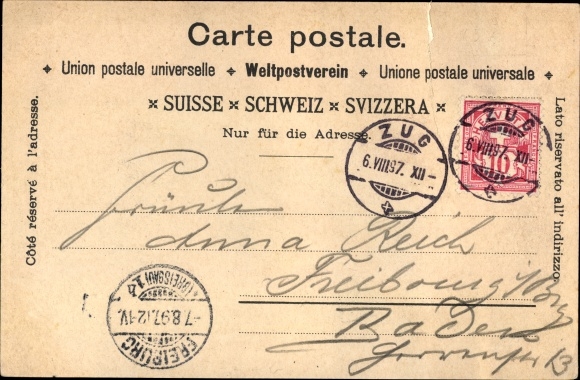 Carte postale.
✦ Union postale universelle ✦ Weltpostverein ✦ Unione postale universale ✦
× SUISSE × SCHWEIZ × SVIZZERA ×
Nur für die Adresse.
Côté réservé à l'adresse.
Lato riservato all' indirizzo.
ZUG
6.VIII.97. XII–
ZUG
6.VIII.97. XII–
10
Fräulein
Anna Reich
Freiburg i/Brg
Baden
13
FREIBURG
(BREISGAU) 1
7.8.97.12-1V.